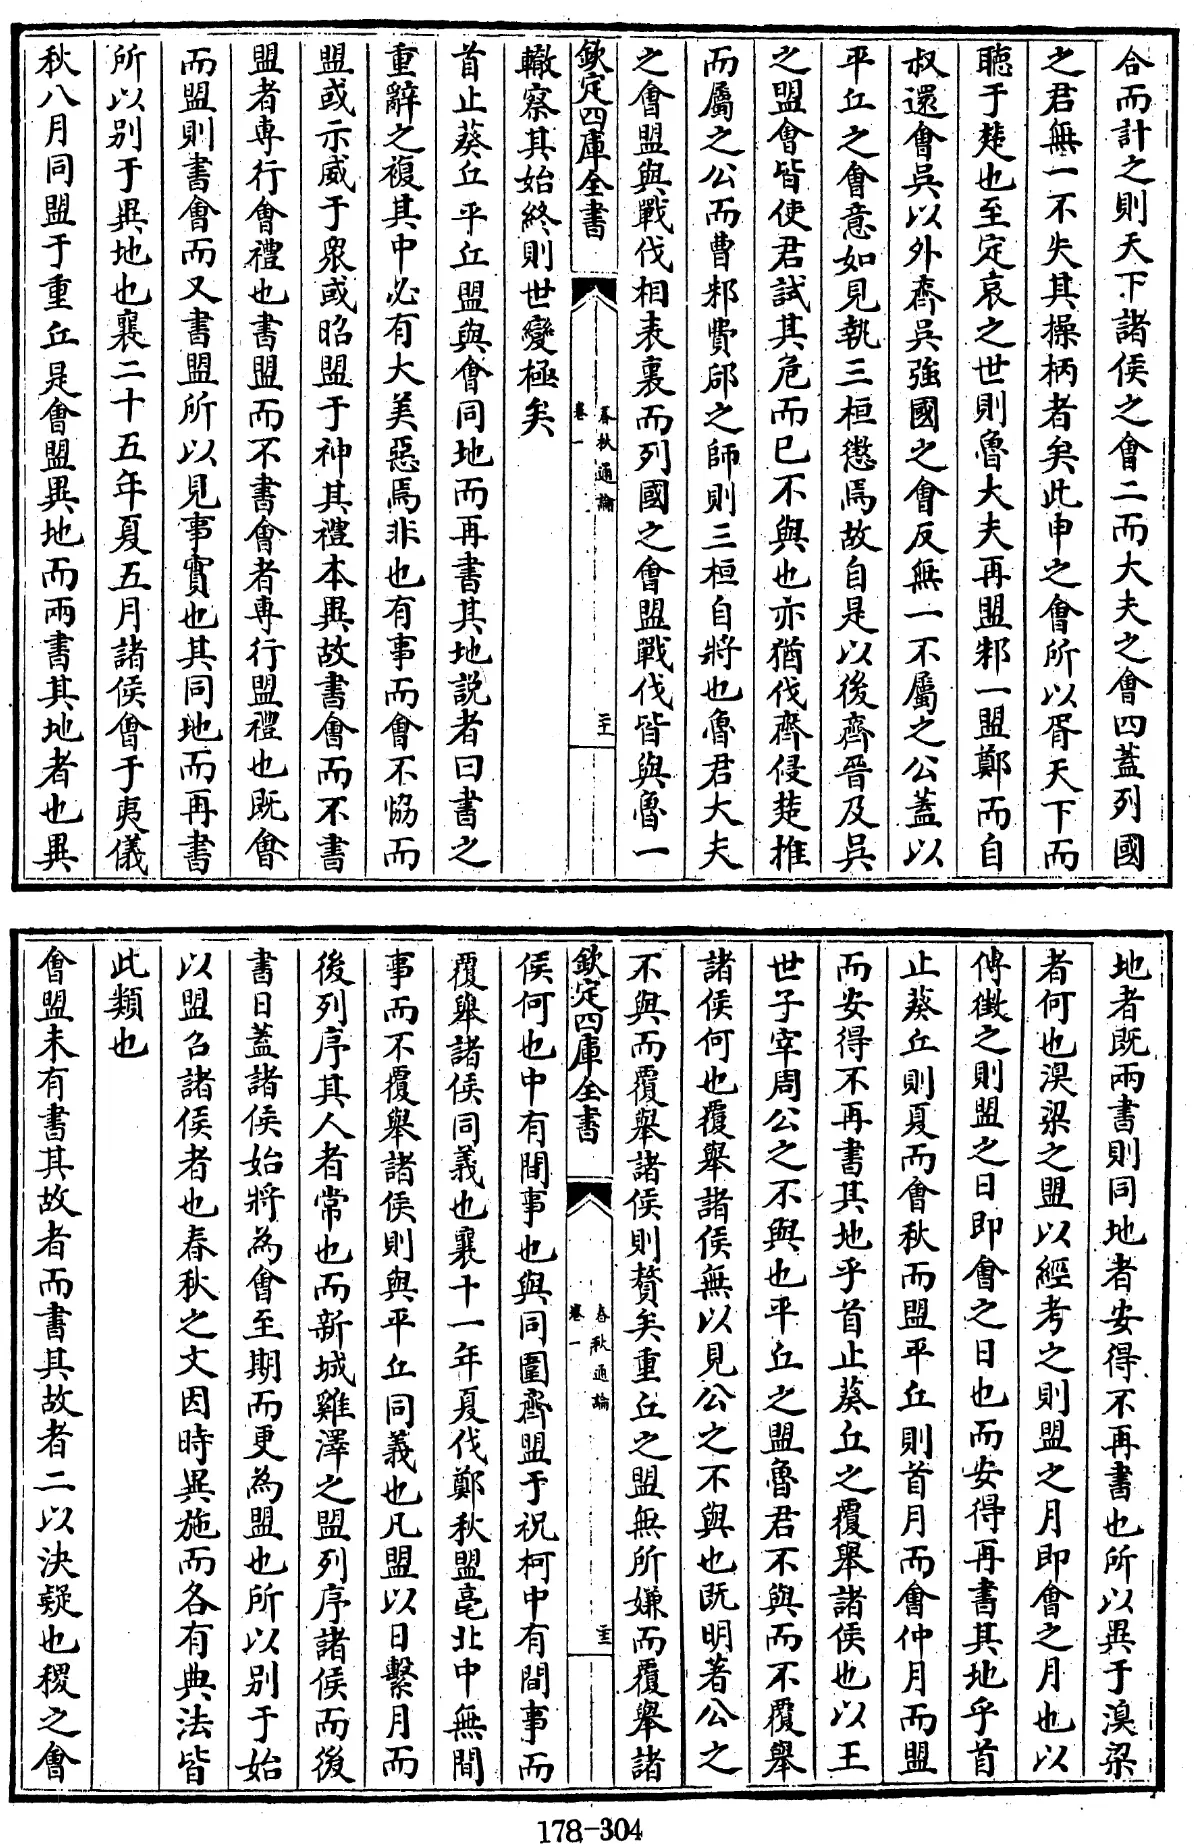 合而計之則天下諸侯之會二而大夫之會四蓋列國
之君無一不失其操柄者矣此申之會所以胥天下而
聽于楚也至定哀之世則魯大夫再盟邾一盟鄭而自
叔還會吳以外齊吳強國之會反無一不屬之公蓋以
平丘之會意如見執三桓懲焉故自是以後齊晉及吳
之盟會皆使君試其危而已不與也亦猶伐齊侵楚推
而屬之公而曹邾費郈之師則三桓自將也魯君大夫
之會盟與戰伐相表裏而列國之會盟戰伐皆與魯一
欽定四庫全書
春秋通論
卷一
二十
轍察其始終則世變極矣
首止葵丘平丘盟與會同地而再書其地説者曰書之
重辭之複其中必有大美惡焉非也有事而會不恊而
盟或示威于衆或昭盟于神其禮本異故書會而不書
盟者專行會禮也書盟而不書會者專行盟禮也既會
而盟則書會而又書盟所以見事實也其同地而再書
所以別于異地也襄二十五年夏五月諸侯會于夷儀
秋八月同盟于重丘是會盟異地而兩書其地者也異
地者既兩書則同地者安得不再書也所以異于溴梁
者何也溴梁之盟以經考之則盟之月即會之月也以
傳徵之則盟之日即會之日也而安得再書其地乎首
止葵丘則夏而會秋而盟平丘則首月而會仲月而盟
而安得不再書其地乎首止葵丘之覆舉諸侯也以王
世子宰周公之不與也平丘之盟魯君不與而不覆舉
諸侯何也覆舉諸侯無以見公之不與也既明著公之
不與而覆舉諸侯則贅矣重丘之盟無所嫌而覆舉諸
欽定四庫全書
春秋通論
卷一
侯何也中有間事也與同圍齊盟于祝柯中有間事而
覆舉諸侯同義也襄十一年夏伐鄭秋盟亳北中無間
事而不覆舉諸侯則與平丘同義也凡盟以日繫月而
後列序其人者常也而新城雞澤之盟列序諸侯而後
書日蓋諸侯始將為會至期而更為盟也所以别于始
以盟召諸侯者也春秋之文因時異施而各有典法皆
此類也
會盟未有書其故者而書其故者二以決疑也稷之會
178-304